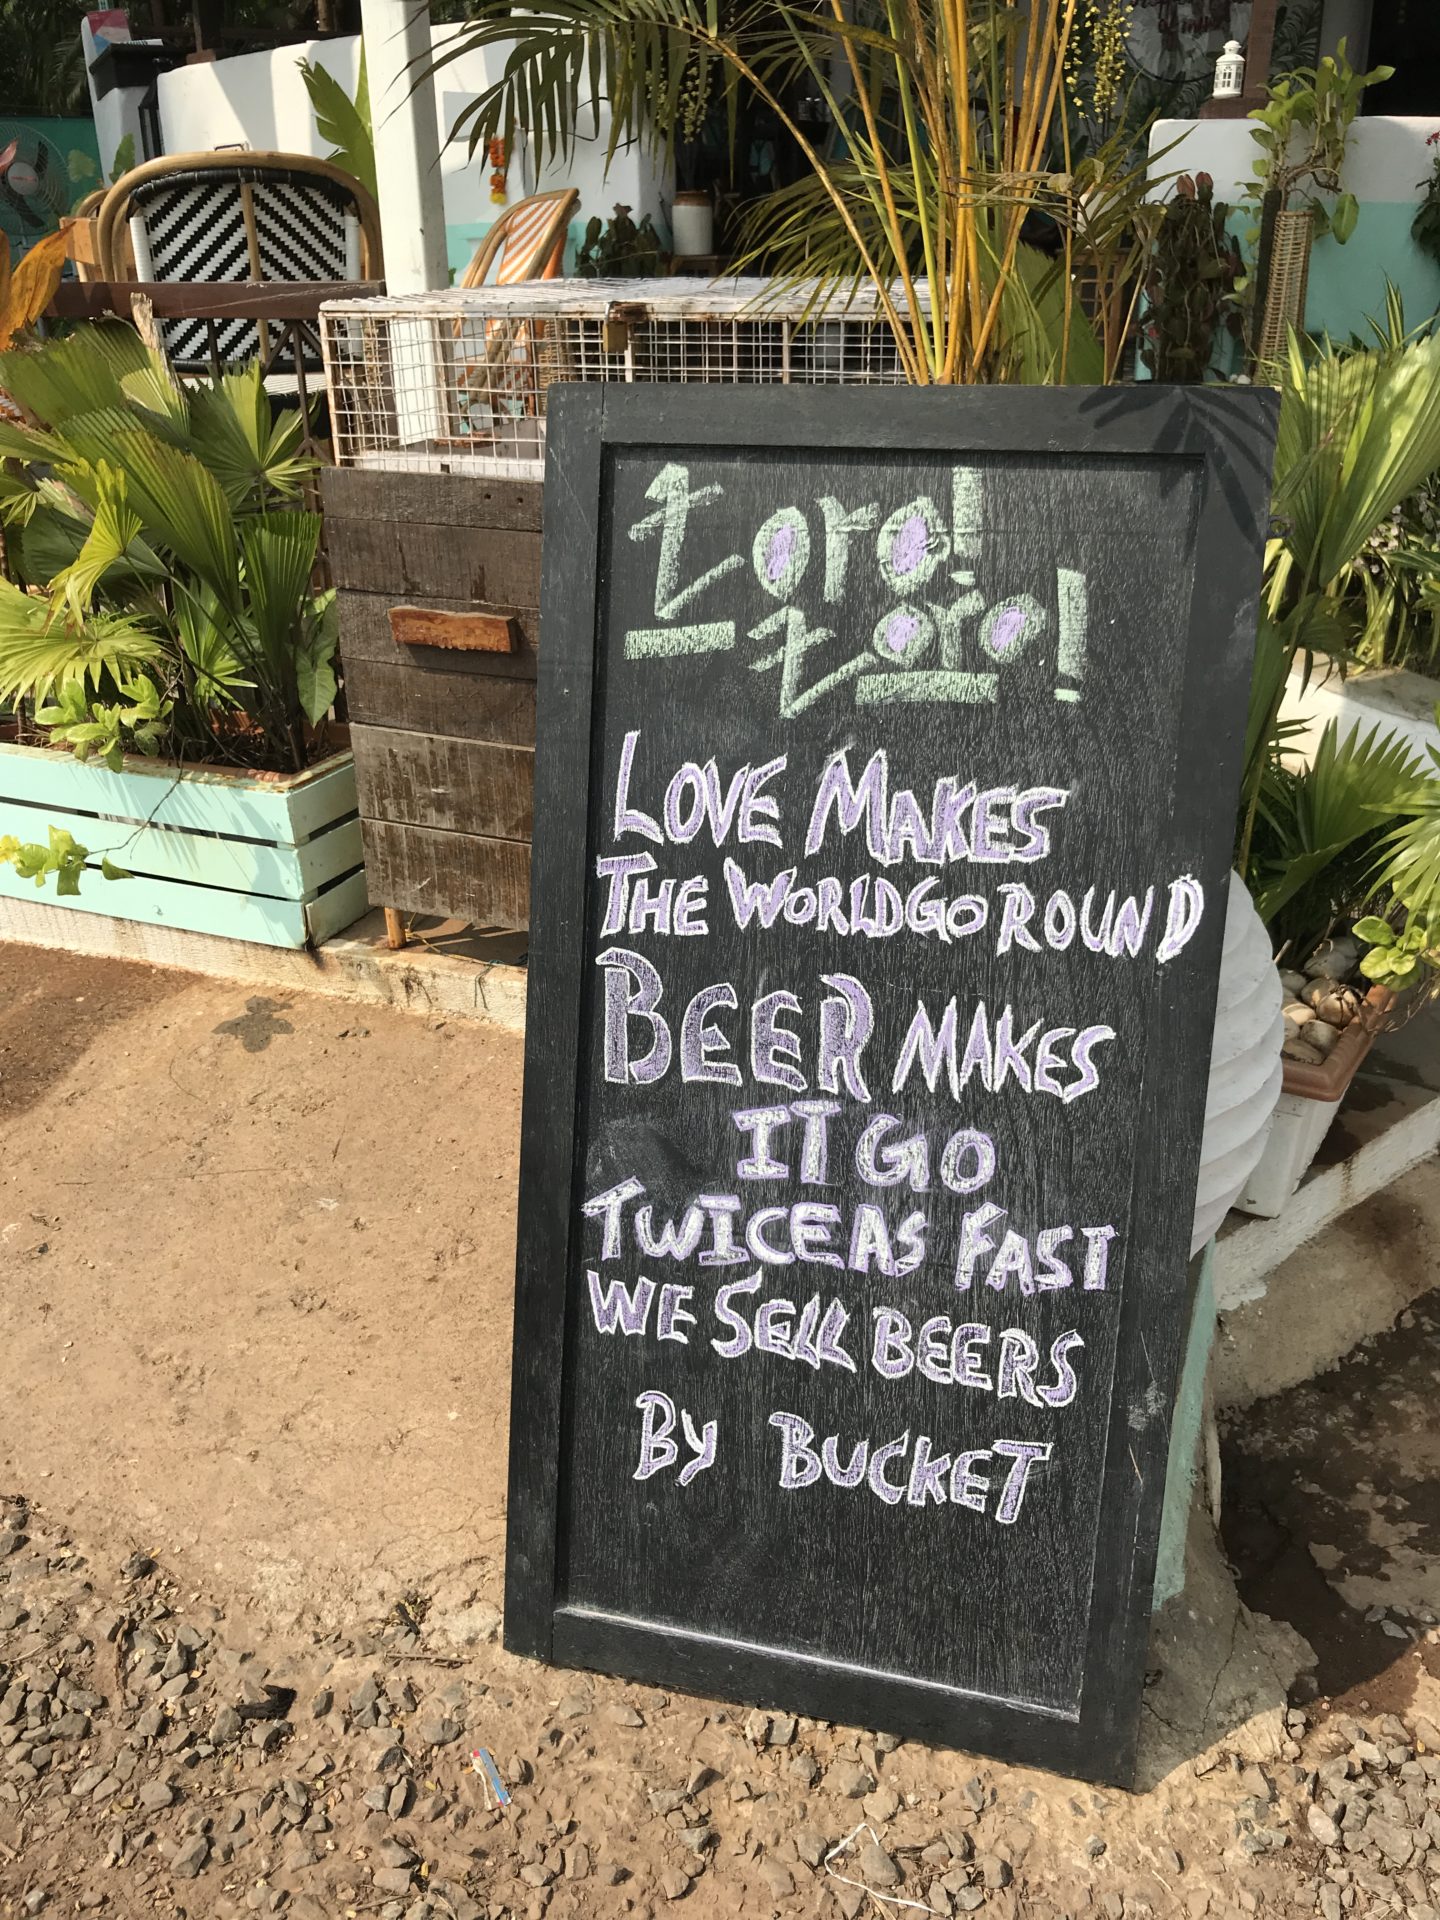 Toro!
Toro!
LOVE MAKES
THE WORLD GO ROUND
BEER MAKES
IT GO
TWICE AS FAST
WE SELL BEERS
BY BUCKET